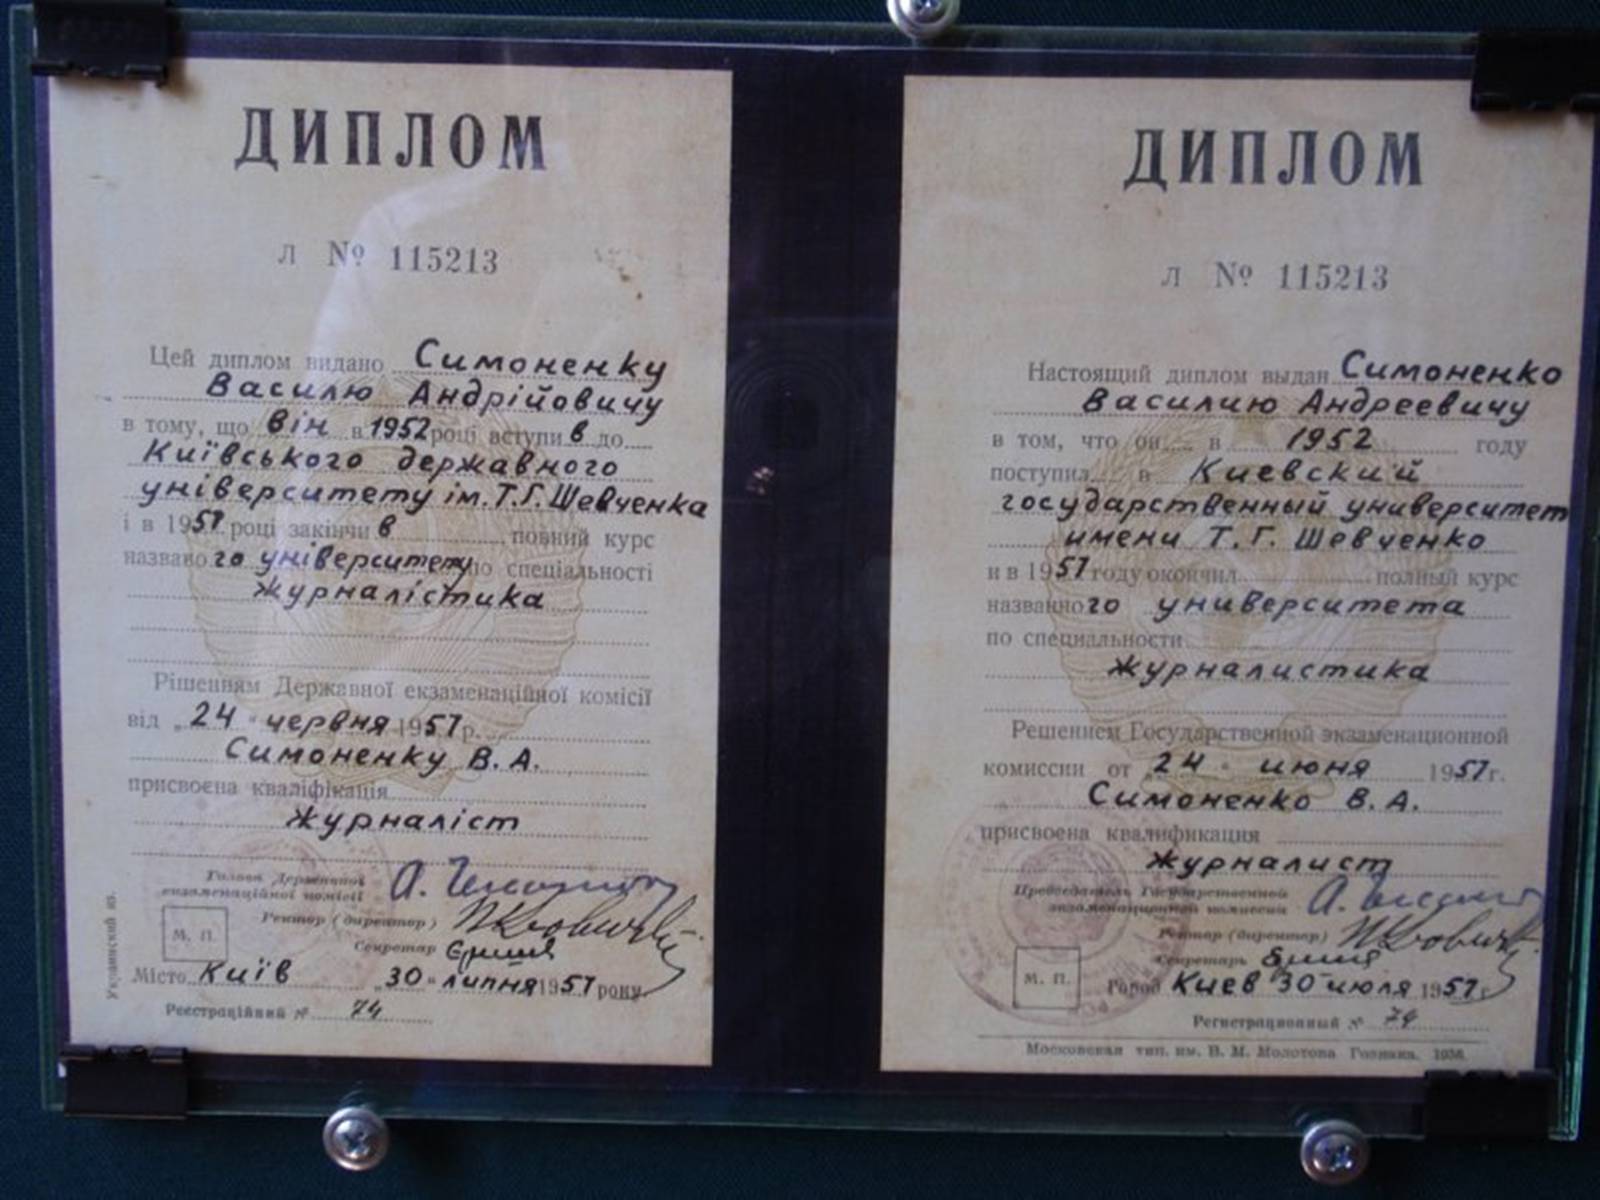 ДИПЛОМ
Л № 115213
Цей диплом видано Симоненку
Василю Андрійовичу
в тому, що він в 1952 році вступив до
Київського державного
університету ім. Т.Г. Шевченка
і в 1957 році закінчив повний курс
названого університету по спеціальності
журналістика
Рішенням Державної екзаменаційної комісії
від „24" червня 1957 р.
Симоненку В. А.
присвоєна кваліфікація
журналіст
Голова Державної
екзаменаційної комісії
Ректор (директор)
М. П.
Секретар
Місто Київ „30" липня 1957 року.
Реєстраційний № 74
Украинский яз.
ДИПЛОМ
Л № 115213
Настоящий диплом выдан Симоненко
Василию Андреевичу
в том, что он в 1952 году
поступил в Киевский
государственный университет
имени Т. Г. Шевченко
и в 1957 году окончил полный курс
названного университета
по специальности
журналистика
Решением Государственной экзаменационной
комиссии от „24" июня 1957 г.
Симоненко В. А.
присвоена квалификация
журналист
Председатель Государственной
экзаменационной комиссии
Ректор (директор)
Секретарь
М. П.
Город Киев 30 июля 1957 г.
Регистрационный № 74
Московская тип. им. В. М. Молотова Гознака. 1956.